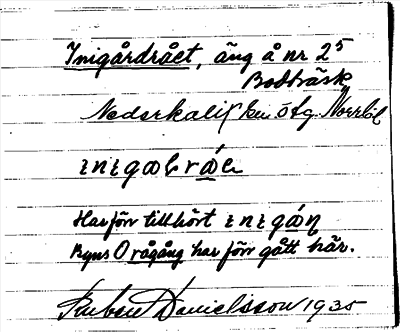 Inigårdrået, äng å nr 25
Bodträsk
Nederkalix sn ö tg. Norrbl
ınıgɑɷrɑ́
Har förr tillhört ınıgɑ́ɳ
Byns rågång har förr gått här.
Ruben Danielsson 1935